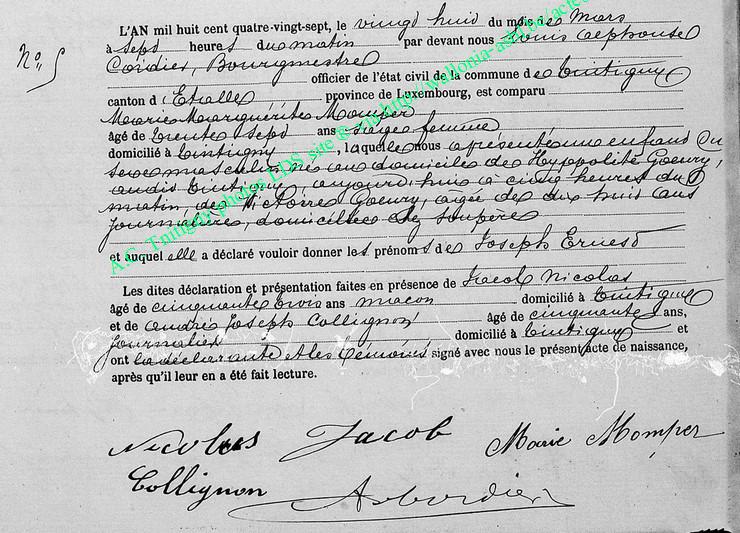 No 5
L'AN mil huit cent quatre-vingt-sept, le vingt huit du mois de Mars
à sept heures du matin par devant nous Louis Alphonse
Cordier, Bourgmestre
officier de l'état civil de la commune de Tintigny
canton d'Etalle province de Luxembourg, est comparu
Marie Marguerite Momper
âgé de trente sept ans sage femme
domicilié à Tintigny, laquelle nous a présenté un enfant du
sexe masculin, né au domicile de Hyppolite Goeury,
audit Tintigny, aujourd'huis à cinq heures du
matin, de Victoire Goeury, agée de dix huit ans
journalière, domiciliée chez son père
et auquel elle a déclaré vouloir donner les prénoms de Joseph Ernest
Les dites déclaration et présentation faites en présence de Jacob Nicolas
âgé de cinquante trois ans macon domicilié à Tintigny
et de André Joseph Collignon âgé de cinquante ans,
journalier domicilié à Tintigny et
ont la déclarante et les témoins signé avec nous le présent acte de naissance,
après qu'il leur en a été fait lecture.
Nicolas Jacob Marie Momper
Collignon
A.C. Tintigny photos LDS site ® via http://wallonia-asbl.be/actes